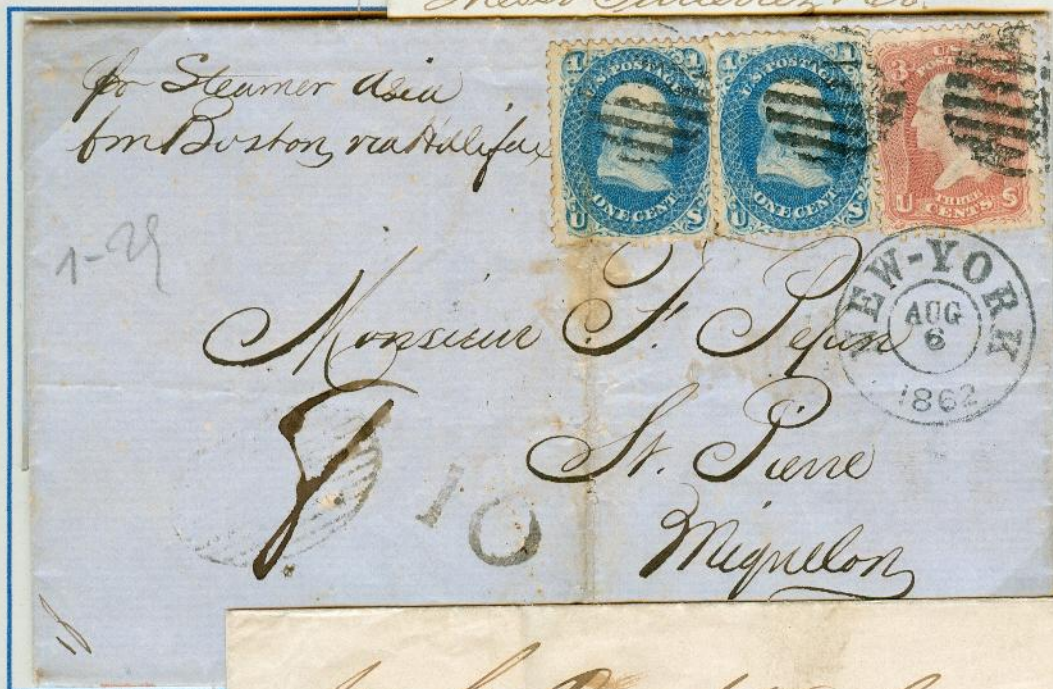 pr Steamer Asia
fm Boston, via Halifax
1 U.S. POSTAGE 1
ONE CENT
U S
1 U.S. POSTAGE 1
ONE CENT
U S
3 U.S. POSTAGE
THREE CENTS
U S
NEW-YORK
AUG
6
1862
1-29
Monsieur F. Pepin
St. Pierre
Miquelon
10